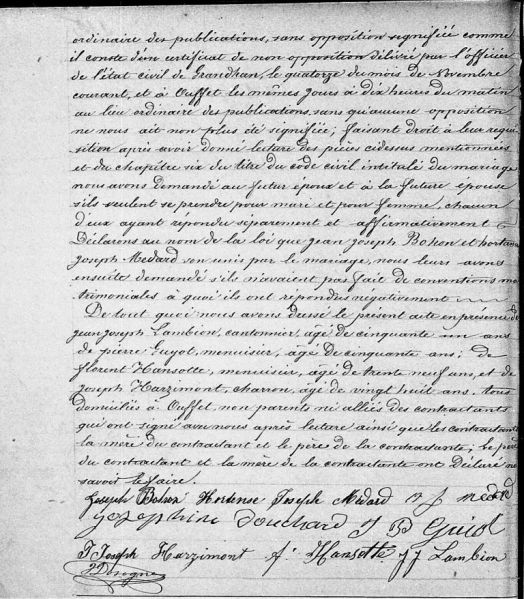 ordinaire des publications, sans opposition signifiée comme
il conste d'un certificat de non opposition délivré par l'officier
de l'état civil de Grandhan, le quatorze du mois de Novembre
courant, et à Ouffet les mêmes jours à dix heures du matin
au lieu ordinaire des publications, sans qu'aucune opposition
ne nous ait non plus été signifiée; faisant droit à leur requi
sition après avoir donné lecture des pièces cidessus mentionnées
et du chapitre six du titre du code civil intitulé du mariage
nous avons demandé au futur époux et à la future épouse
s'ils veulent se prendre pour mari et pour femme, chacun
d'eux ayant répondu séparement et affirmativement
Déclarons au nom de la loi que jean joseph Bohon et hortense
joseph Médard son unis par le mariage, nous leurs avons
ensuite demandé s'ils n'avaient pas fait de conventions ma
trimoniales à quoi ils ont repondus négativement
De tout quoi nous avons dressé le présent acte en présence de
jean joseph Lambion, cantonnier, âgé de cinquante un ans
de pierre Guyot, menuisier, âgé de cinquante ans; de
florent Hansotte, menuisier, âgé de trente neuf ans, et de
joseph Harzimont, charron, âgé de vingt huit ans, tous
domiciliés à Ouffet, non parents ni alliés des contractants
qui ont signé avec nous après lecture ainsi que les contractants
la mère du contractant et le père de la contractante; le père
du contractant et la mère de la contractante ont déclaré ne
savoir le faire.
Joseph Bohon Hortense Joseph Médard J médard
Josephine Douchard J B Guiot
T Joseph Harzimont f. Hansotte J J Lambion